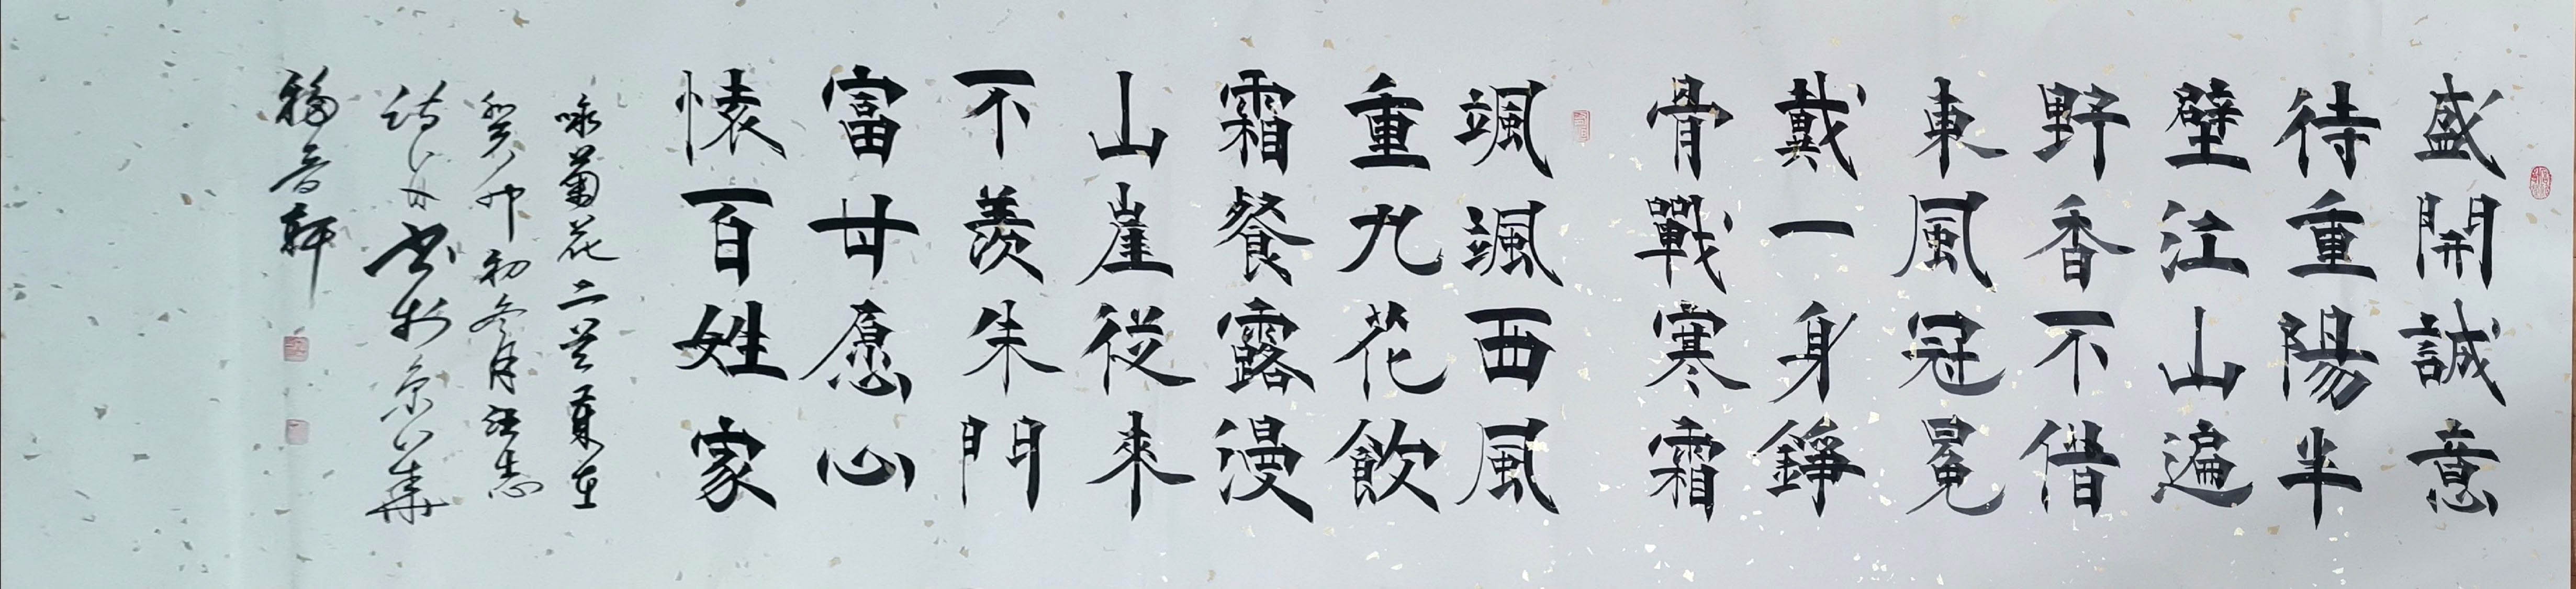 盛開誠意
待重陽半
壁江山遍
野香不借
東風冠冕
戴一身錚
骨戰寒霜
颯颯西風
重九花飲
霜餐露漫
山崖從來
不羨朱門
富甘愿心
懐百姓家
咏菊花二首
癸卯初冬月
書於京華
軒